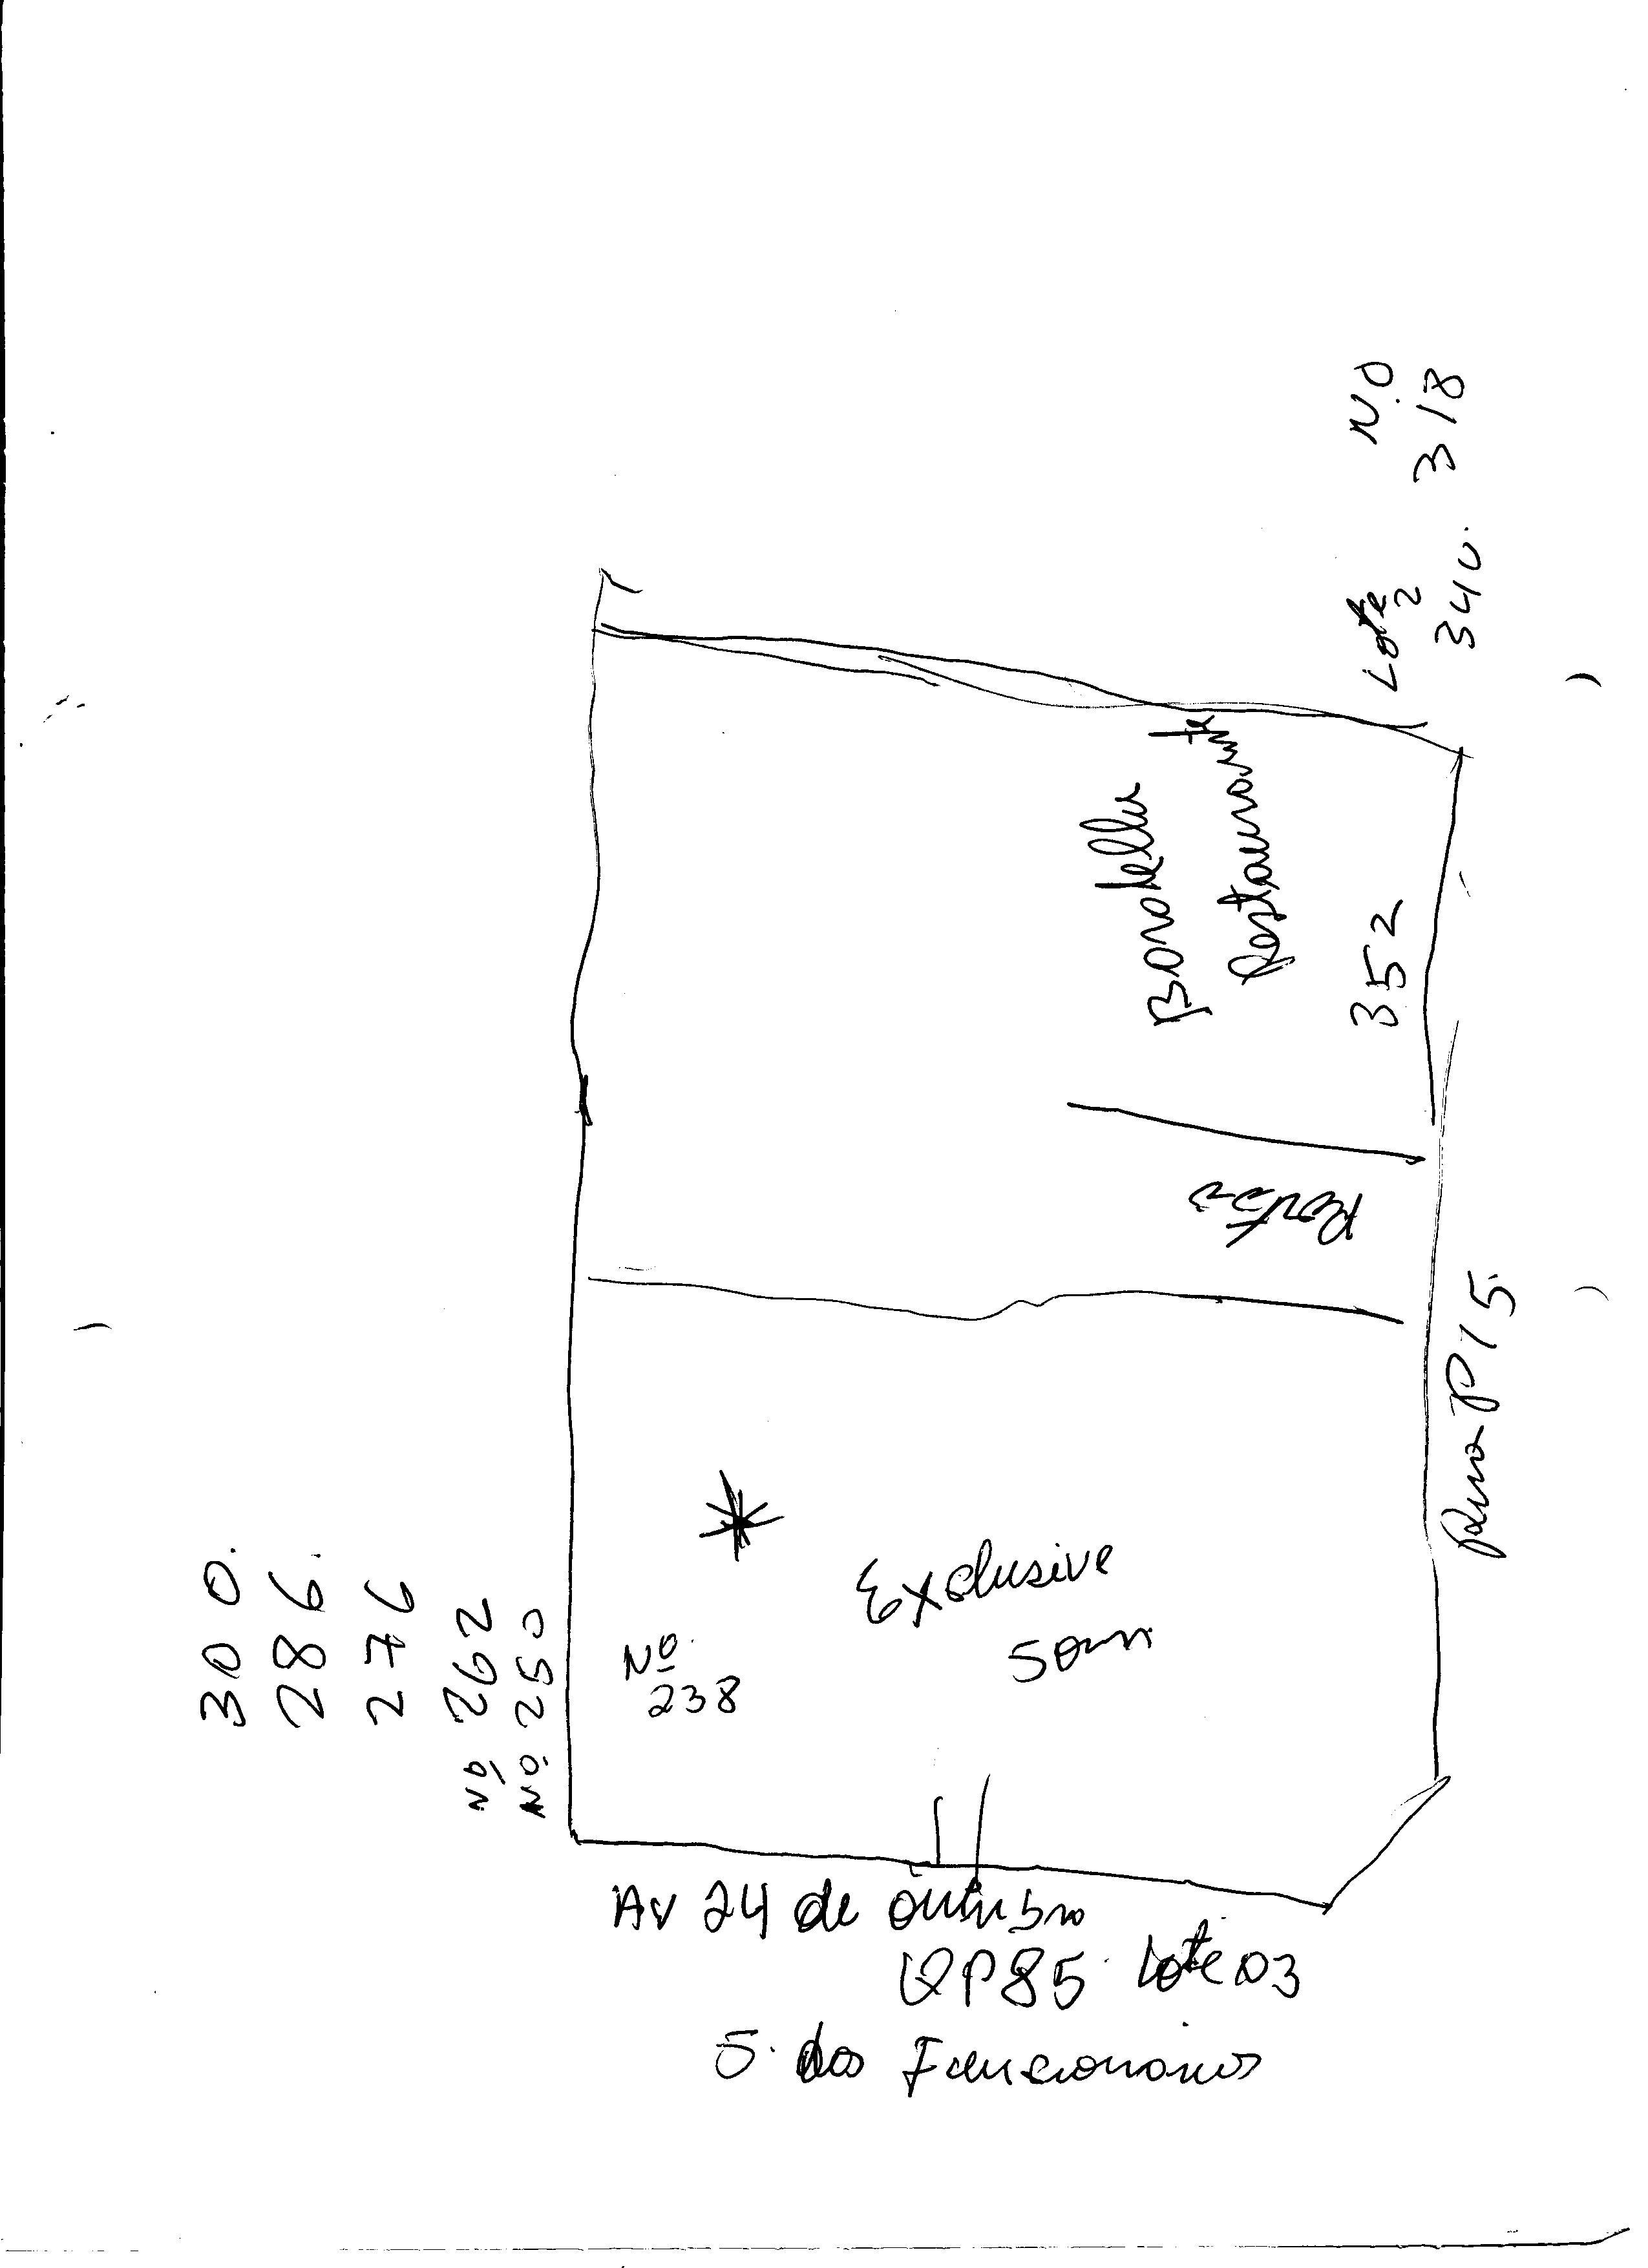 300.
286.
276
No 262
No. 250
No.
238
Exclusive
Som
Portão
Restaurante
352
Lote
2
340.
No
318
Rua P15.
Av 24 de outubro
QP85. Lote 03
S. dos Funcionarios